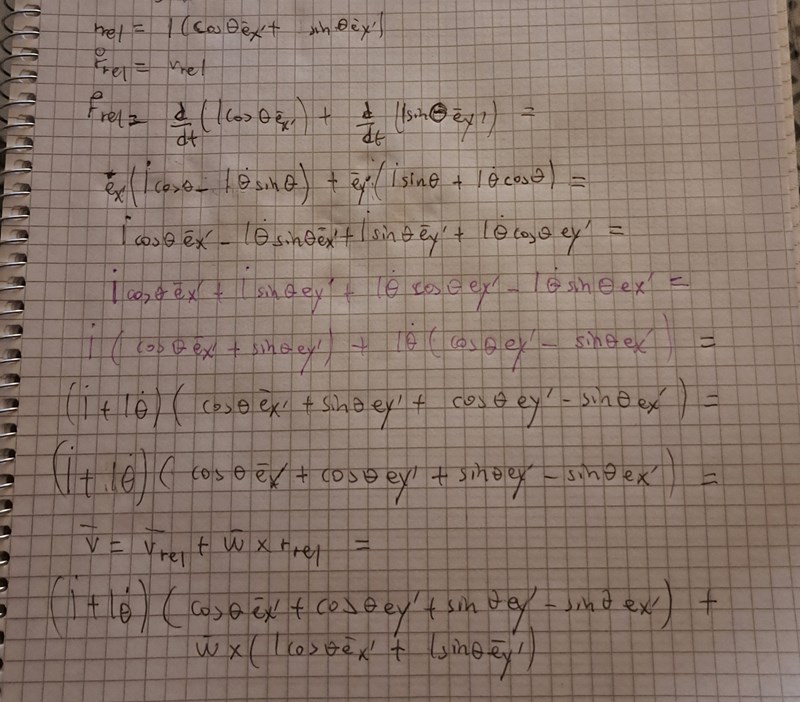 r_rel = l (cosθ ēx' + sinθ ēx')
r̊_rel = v_rel
r̊_rel = d/dt (l cosθ ēx') + d/dt (l sinθ ēy') =
ēx' (l̇ cosθ - lθ̇ sinθ) + ēy' (l̇ sinθ + lθ̇ cosθ) =
l̇ cosθ ēx' - lθ̇ sinθ ēx' + l̇ sinθ ēy' + lθ̇ cosθ ey' =
l̇ cosθ ēx' + l̇ sinθ ey' + lθ̇ cosθ ey' - lθ̇ sinθ ex' =
l̇ ( cosθ ēx' + sinθ ey' ) + lθ̇ ( cosθ ey' - sinθ ex' ) =
(l̇ + lθ̇) ( cosθ ēx' + sinθ ey' + cosθ ey' - sinθ ex' ) =
(l̇ + lθ̇) ( cosθ ēx' + cosθ ey' + sinθ ey' - sinθ ex' ) =
v̄ = v̄_rel + w̄ × r_rel =
(l̇ + lθ̇) ( cosθ ēx' + cosθ ey' + sinθ ey' - sinθ ex' ) +
w̄ × ( l cosθ ēx' + l sinθ ēy' )